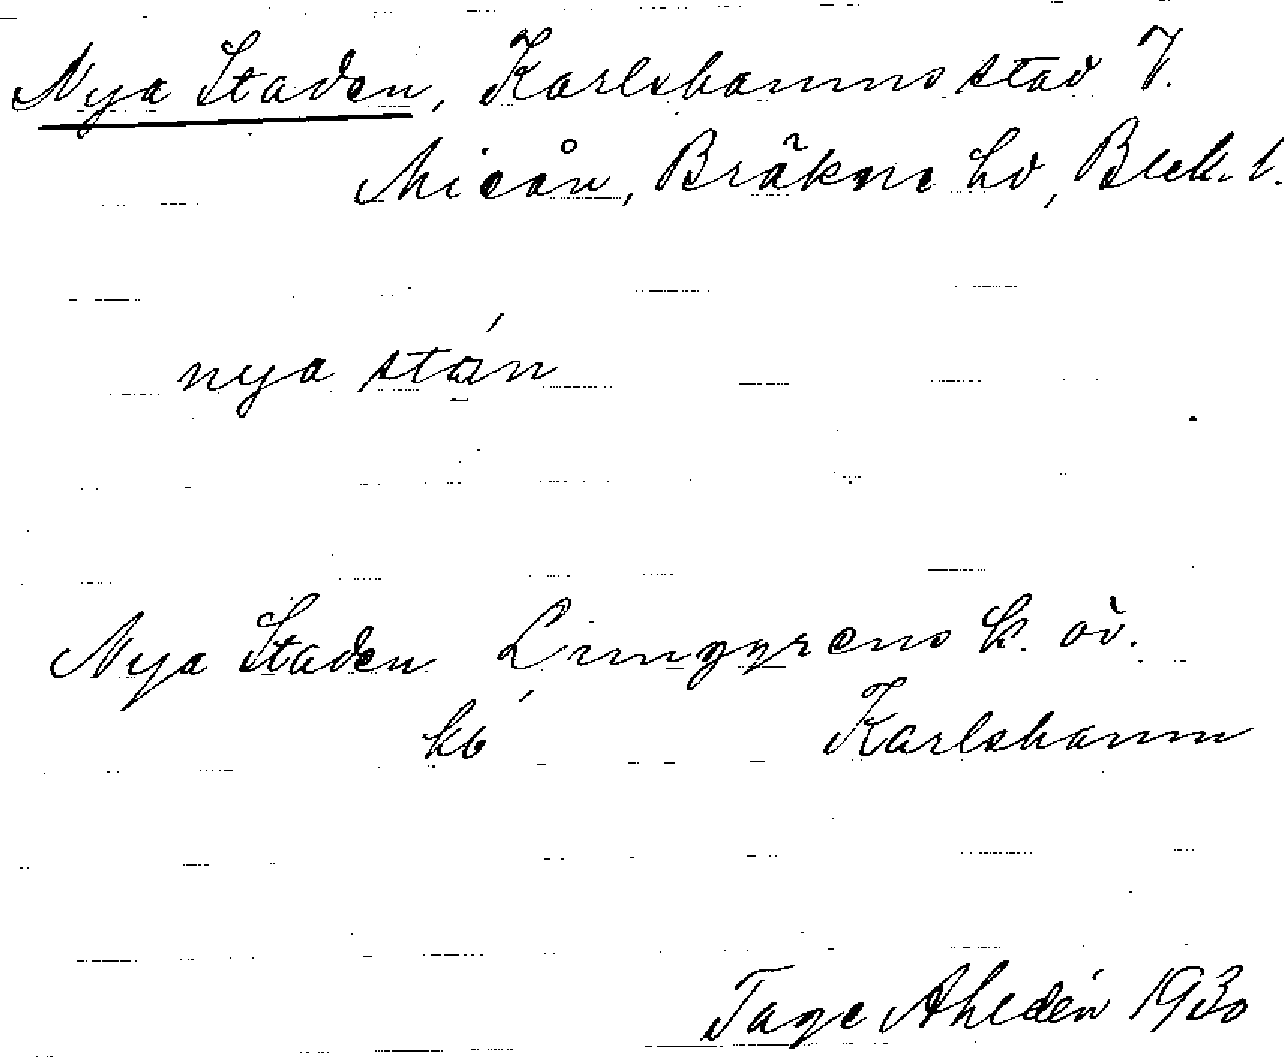 Nya Staden, Karlshamns stad V.
Mieån, Bräkne hd, Blek. l.
nya stán
Nya Staden Ljunggrens k. öv.
kó Karlshamn
Tage Ahldén 1930